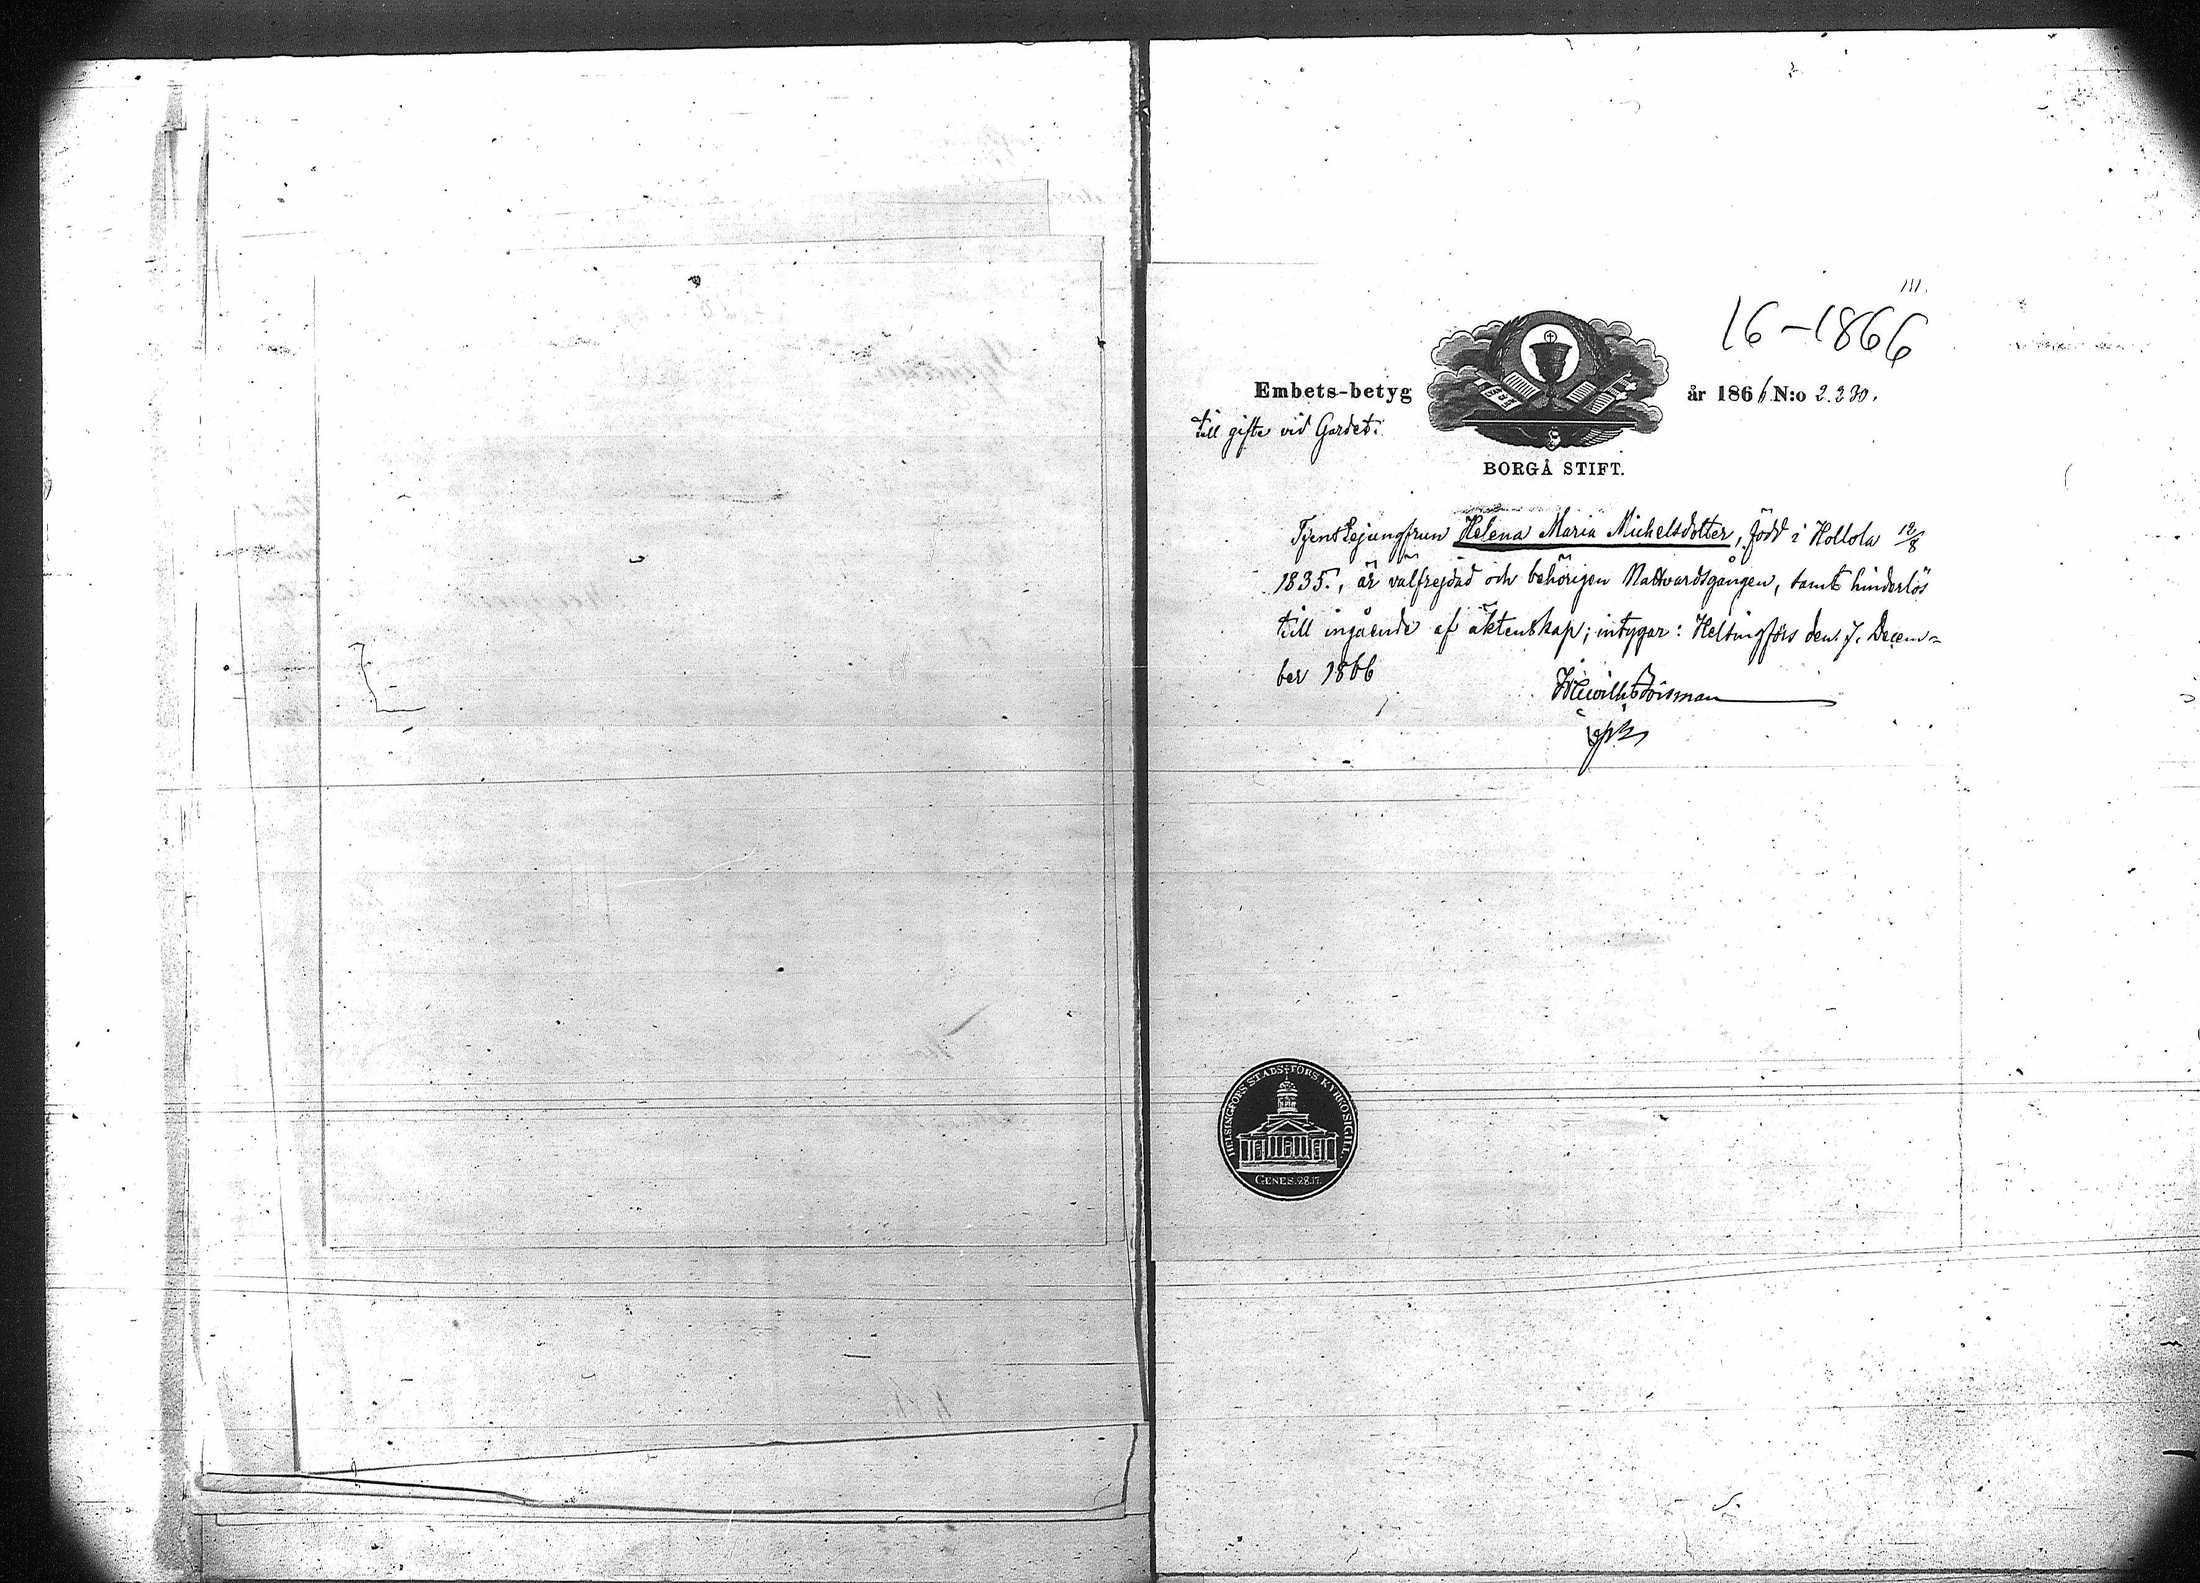 111.
16-1866
Embets-betyg år 1866 N:o 2.230.
till gifte vid Gardet.
BORGÅ STIFT.
Tjenstejungfrun Helena Maria Michelsdotter, född i Hollola 12/8
1835., är välfrejdad och behörigen Nattvardsgången, samt hinderlös
till ingående af äktenskap; intygar: Helsingfors den 7. Decem-
ber 1866
Forsman
HELSINGFORS STADS FÖRS. KYRKOSIGILL.
GENES. 28.17.